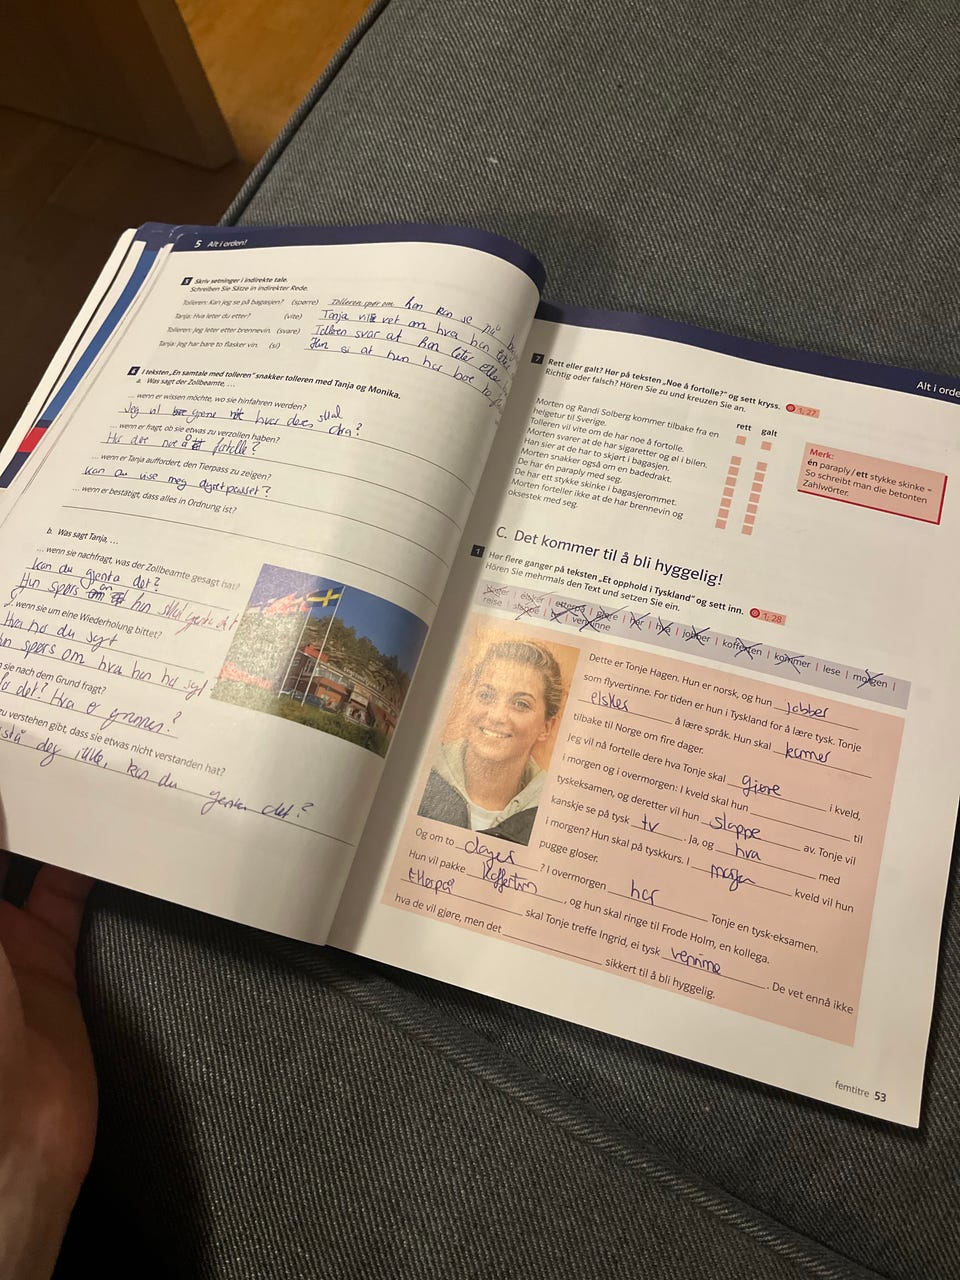 5 Alt i orden!
3 Skriv setninger i indirekte tale.
Schreiben Sie Sätze in indirekter Rede.
Tolleren: Kan jeg se på bagasjen? (spørre) Tolleren spør om han kan se på
Tanja: Hva leter du etter? (vite) Tanja vil vet om hva han leter
Tolleren: Jeg leter etter brennevin. (svare) Tolleren svar at han leter etter
Tanja: Jeg har bare to flasker vin. (si) Hun si at hun har bare to
I teksten „En samtale med tolleren" snakker tolleren med Tanja og Monika.
a. Was sagt der Zollbeamte, …
… wenn er wissen möchte, wo sie hinfahren werden?
Jeg vil gjerne hvor dees skal dra?
… wenn er fragt, ob sie etwas zu verzollen haben?
Har dee noe å fortolle?
… wenn er Tanja auffordert, den Tierpass zu zeigen?
kan du vise meg dyretpasset?
… wenn er bestätigt, dass alles in Ordnung ist?
b. Was sagt Tanja, …
… wenn sie nachfragt, was der Zollbeamte gesagt hat?
kan du gjenta det?
Hun spørs om hun skal gjenta det
wenn sie um eine Wiederholung bittet?
Hva har du sagt
spørs om hva han har sagt
sie nach dem Grund fragt?
det? Hva er grunnen?
zu verstehen gibt, dass sie etwas nicht verstanden hat?
deg ikke, kan du gjenta det?
7 Rett eller galt? Hør på teksten „Noe å fortolle?" og sett kryss. 1, 27
Richtig oder falsch? Hören Sie zu und kreuzen Sie an.
rett galt
Morten og Randi Solberg kommer tilbake fra en
helgetur til Sverige.
Tolleren vil vite om de har noe å fortolle.
Morten svarer at de har sigaretter og øl i bilen.
Han sier at de har to skjørt i bagasjen.
Morten snakker også om en badedrakt.
De har én paraply med seg.
De har ett stykke skinke i bagasjerommet.
Morten forteller ikke at de har brennevin og
oksestek med seg.
Merk:
én paraply / ett stykke skinke –
So schreibt man die betonten
Zahlwörter.
C. Det kommer til å bli hyggelig!
1 Hør flere ganger på teksten „Et opphold i Tyskland" og sett inn. 1, 28
Hören Sie mehrmals den Text und setzen Sie ein.
elsker | etterpå | gjøre | har | hva | jobber | kofferten | kommer | lese | morgen |
reise | slappe | tv | venninne
Dette er Tonje Hagen. Hun er norsk, og hun jobber
som flyvertinne. For tiden er hun i Tyskland for å lære tysk. Tonje
elsker å lære språk. Hun skal kommer
tilbake til Norge om fire dager.
Jeg vil nå fortelle dere hva Tonje skal gjøre i kveld,
i morgen og i overmorgen: I kveld skal hun til
tyskeksamen, og deretter vil hun slappe av. Tonje vil
kanskje se på tysk tv . Ja, og hva med
i morgen? Hun skal på tyskkurs. I morgen kveld vil hun
pugge gloser.
Og om to dager ? I overmorgen har Tonje en tysk-eksamen.
Hun vil pakke kofferten , og hun skal ringe til Frode Holm, en kollega.
Etterpå skal Tonje treffe Ingrid, ei tysk venninne . De vet ennå ikke
hva de vil gjøre, men det sikkert til å bli hyggelig.
femtitre 53